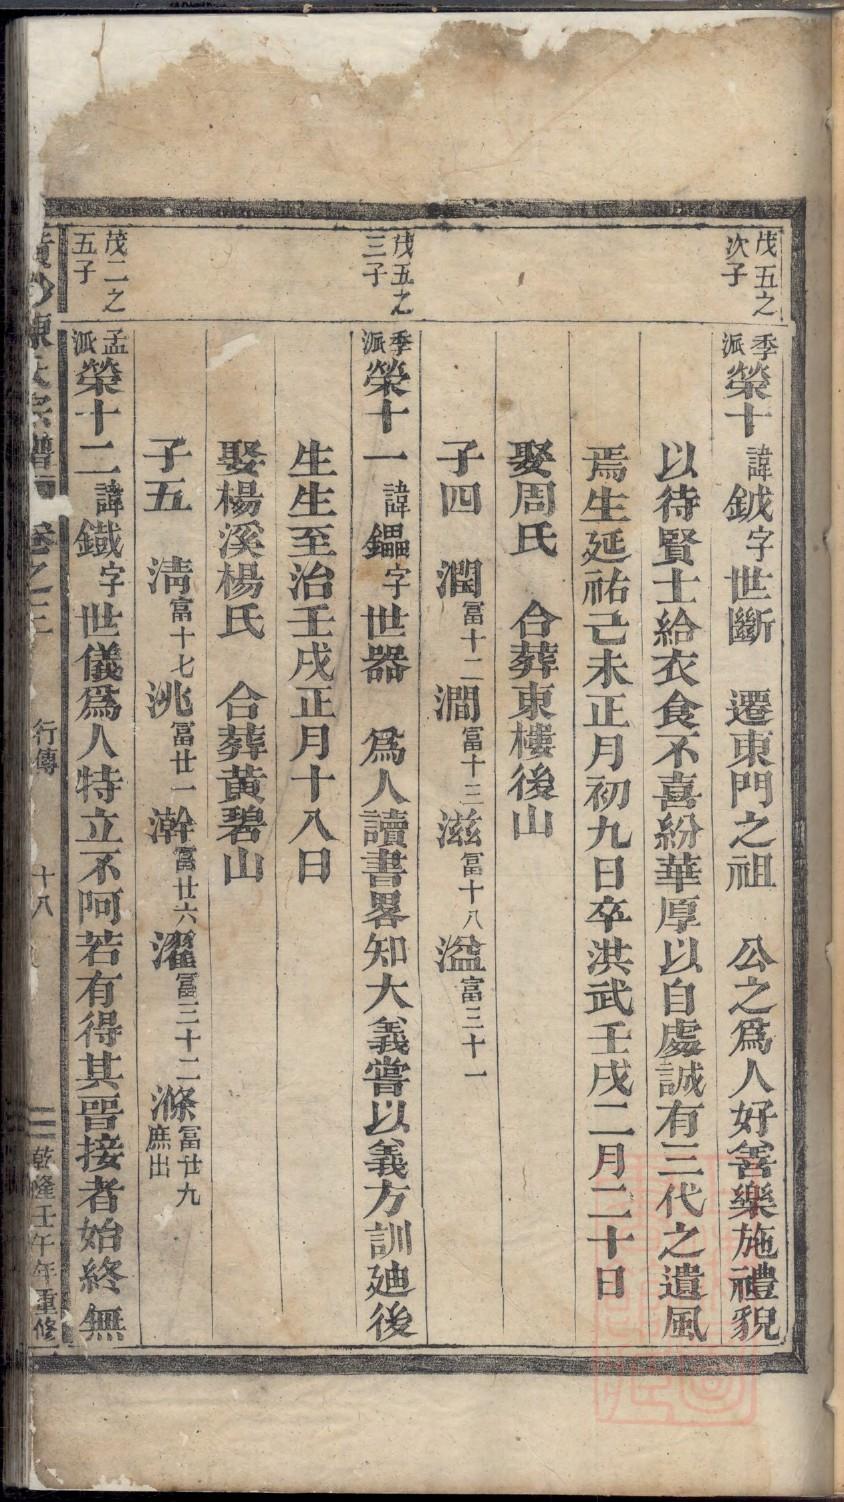 茂五之次子
季派榮十 諱鉞字世斷 遷東門之祖 公之爲人好善樂施禮貌
以待賢士給衣食不喜紛華厚以自處誠有三代之遺風
焉生延祐己未正月初九日卒洪武壬戌二月二十日
娶周氏 合葬東樓後山
子四 潤富十二 澗富十三 滋富十八 溢富三十一
茂五之三子
季派榮十一 諱鑘字世器 爲人讀書畧知大義嘗以義方訓廸後
生生至治壬戌正月十八日
娶楊溪楊氏 合葬黃碧山
子五 淸富十七 洮富廿一 澣富廿六 濯富三十二 滌富廿九庶出
茂二之五子
孟派榮十二 諱鐵字世儀爲人特立不阿若有得其晉接者始終無
陳氏宗譜 卷之三 行傳 十八 乾隆壬午年重修